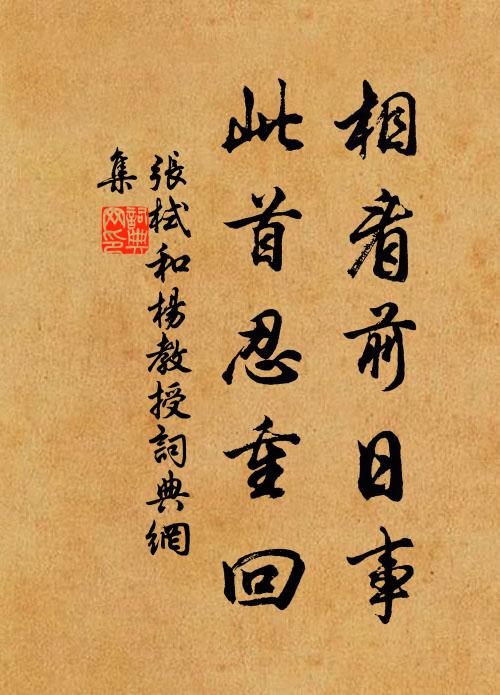 相看前日事
此首忍重回
張栻和楊教授詞典網
集
詞典網印